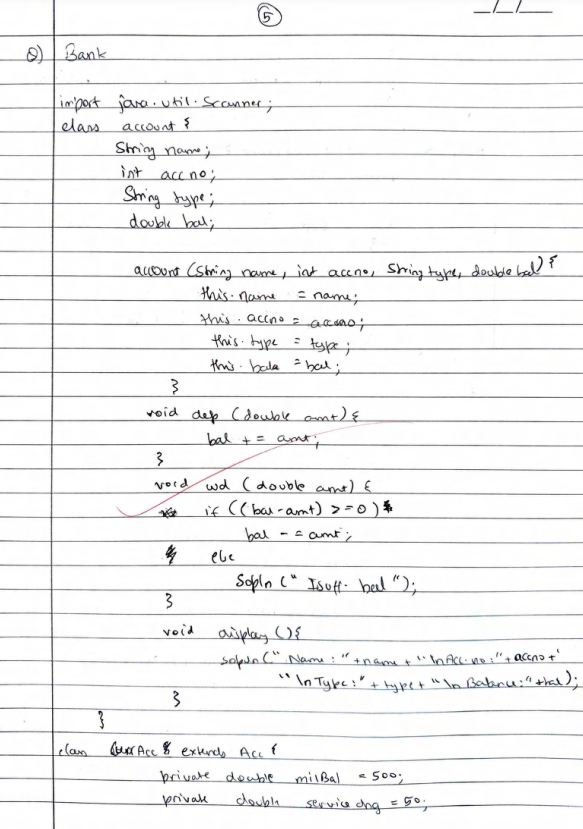 5
_/_/__
Q) Bank
import java.util.Scanner;
class account {
String name;
int accno;
String type;
double bal;
account (String name, int accno, String type, double bal) {
this.name = name;
this.accno = accno;
this.type = type;
this.bal = bal;
}
void dep (double amt) {
bal += amt;
}
void wd (double amt) {
if ((bal-amt) >=0)
bal -= amt;
else
Sopln ("Isuff. bal");
}
void display () {
sopln ("Name:" + name + "\nAcc.no:" + accno +
"\nType:" + type + "\nBalance:" + bal);
}
}
class Acc extends Acc {
private double milBal = 500;
private double service chg = 50;